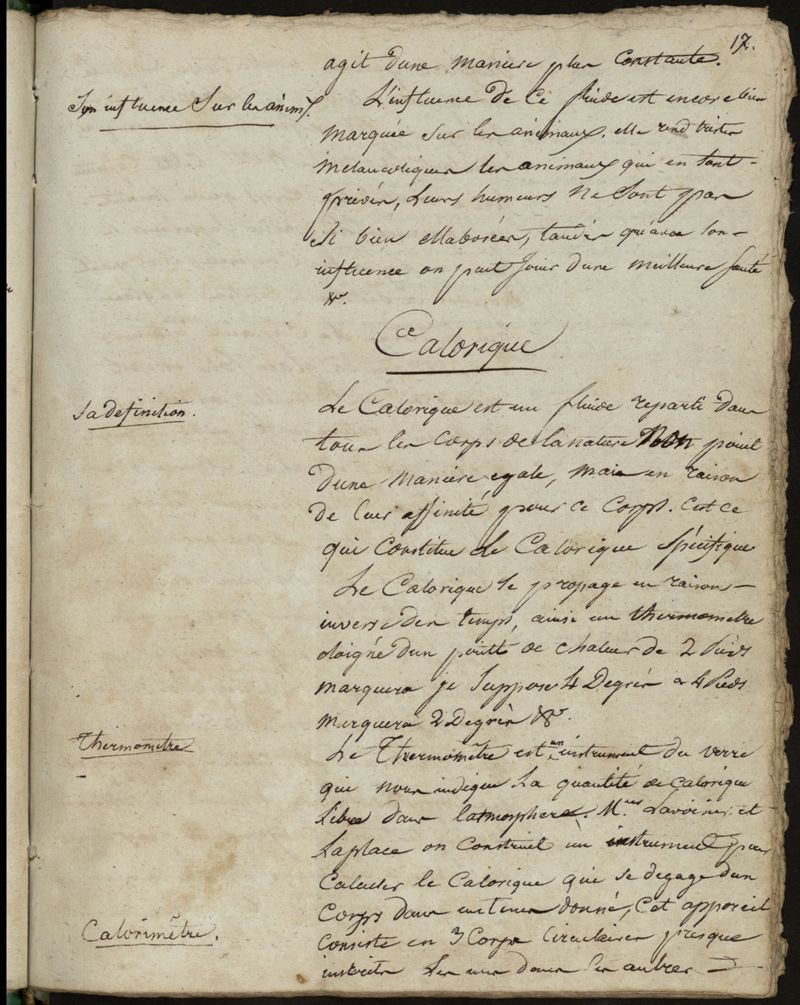 17.
agit d'une maniere plus constante.
Son influence Sur les anim.x
L'influence de Ce fluide est encore bien
marquée sur les animaux. elle rend tristes
melancoliques les animaux qui en sont
privés, Leurs humeurs ne sont pas
Si bien ellaborées, tandis qu'avec son
influence on peut Jouir d'une meilleure santé
&c.
Calorique
sa definition.
Le Calorique est un fluide reparti dans
tous les Corps de la nature Non point
d'une maniere egale, mais en raison
de leur affinité pour ce Corps. C'est ce
qui Constitue le Calorique Spécifique
Le Calorique se propage en raison
inverse des temps, ainsi un thermometre
eloigné d'un point de chaleur de 2 Pieds
marquera je Suppose 4 Degrés a 4 Pieds
merquera 2 Degrés &c.
Thermomêtre
Le Thermomêtre est un instrument du verre
qui nous indique La quantité de Calorique
Libre dans latmosphere. M.rs Lavoisier et
Laplace on Construit un instrument pour
Calculer le Calorique qui se degage d'un
Calorimêtre.
Corps dans un tems donné, Cet appareil
Consiste en 3 Corps Circulaires presque
inscrits Les uns dans les autres